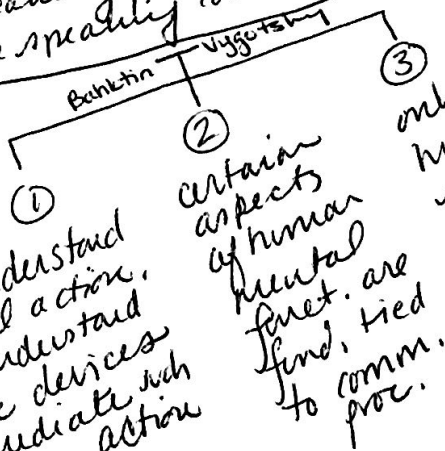 speaking
Bahktin Vygotsky
①
derstand
action.
understand
devices
mediate such
action
②
certaion
aspects
of human
mental
funct. are
fund. tied
to comm.
proc.
③